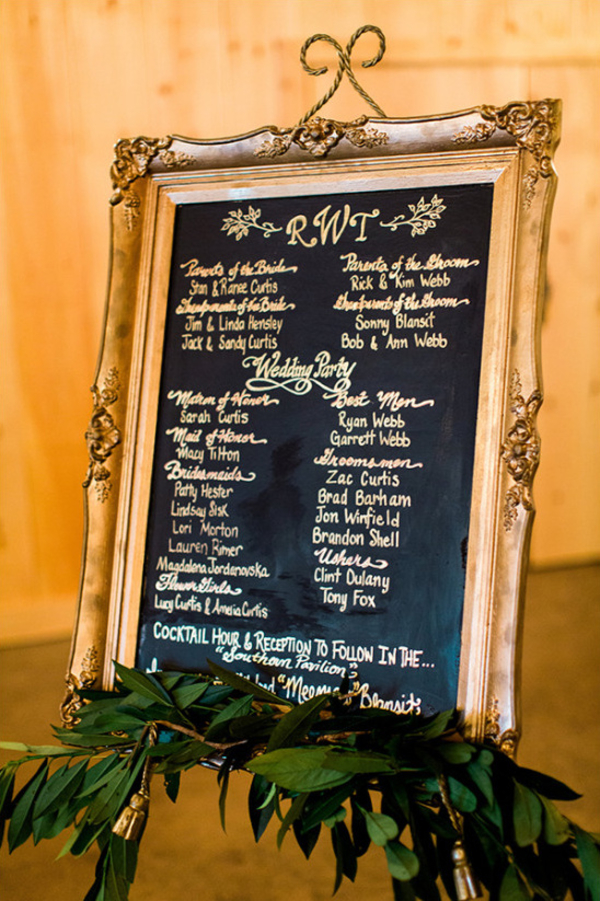 RWT
Parents of the Bride
Stan & Ranee Curtis
Grandparents of the Bride
Jim & Linda Hensley
Jack & Sandy Curtis
Parents of the Groom
Rick & Kim Webb
Grandparents of the Groom
Sonny Blansit
Bob & Ann Webb
Wedding Party
Matron of Honor
Sarah Curtis
Maid of Honor
Macy Tilton
Bridesmaids
Patty Hester
Lindsay Sisk
Lori Morton
Lauren Rimer
Magdalena Jordanovska
Flower Girls
Lucy Curtis & Amelia Curtis
Best Men
Ryan Webb
Garrett Webb
Groomsmen
Zac Curtis
Brad Barham
Jon Winfield
Brandon Shell
Ushers
Clint Dulany
Tony Fox
COCKTAIL HOUR & RECEPTION TO FOLLOW IN THE...
"Southern Pavilion"
Blansit